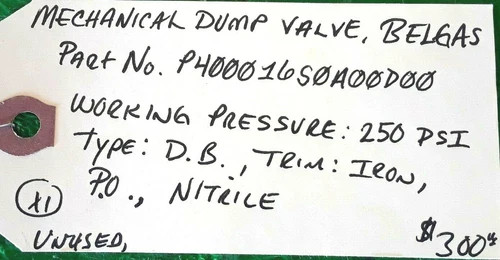 MECHANICAL DUMP VALVE, BELGAS
Part No. P400016S0A00D00
WORKING PRESSURE: 250 PSI
Type: D.B., TRIM: IRON,
P.O., NITRILE
X1
UNUSED,
$300